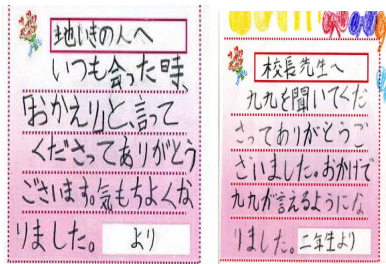 地いきの人へ
いつも会った時、
「おかえり」と、言って
くださってありがとう
ございます。気もちよくな
りました。 より
校長先生へ
九九を聞いてくだ
さってありがとうご
ざいました。おかげで
九九が言えるようにな
りました。二年生より